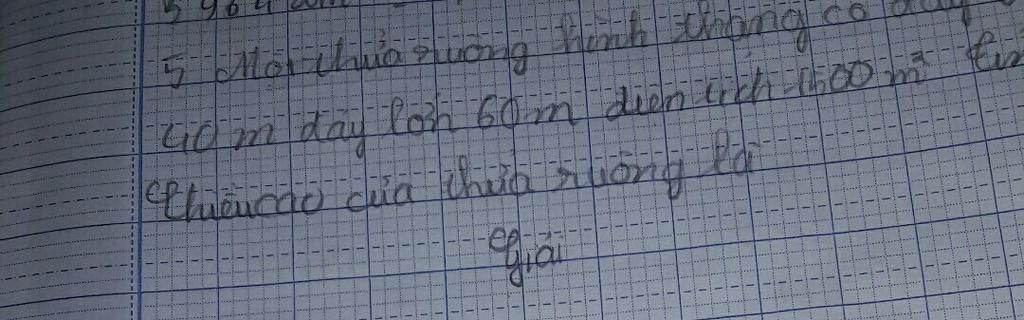 5 Một thửa ruộng hình thang có đáy
40 m đáy lớn 60 m diện tích 1500 m²
Chiều cao của thửa ruộng là
Giải